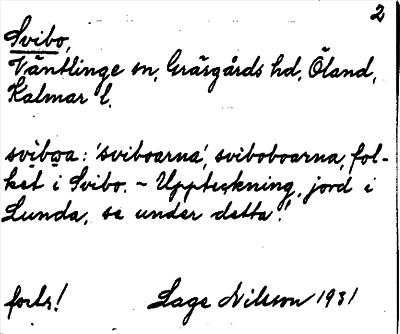 2
Svibo,
Väntlinge sn, Gräsgårds hd, Öland,
Kalmar l.
sviboa: 'sviboarna', sviboboarna, fol-
ket i Svibo. - Uppteckning, jord i
Lunda, se under detta!
forts! Lage Nilsson 1931